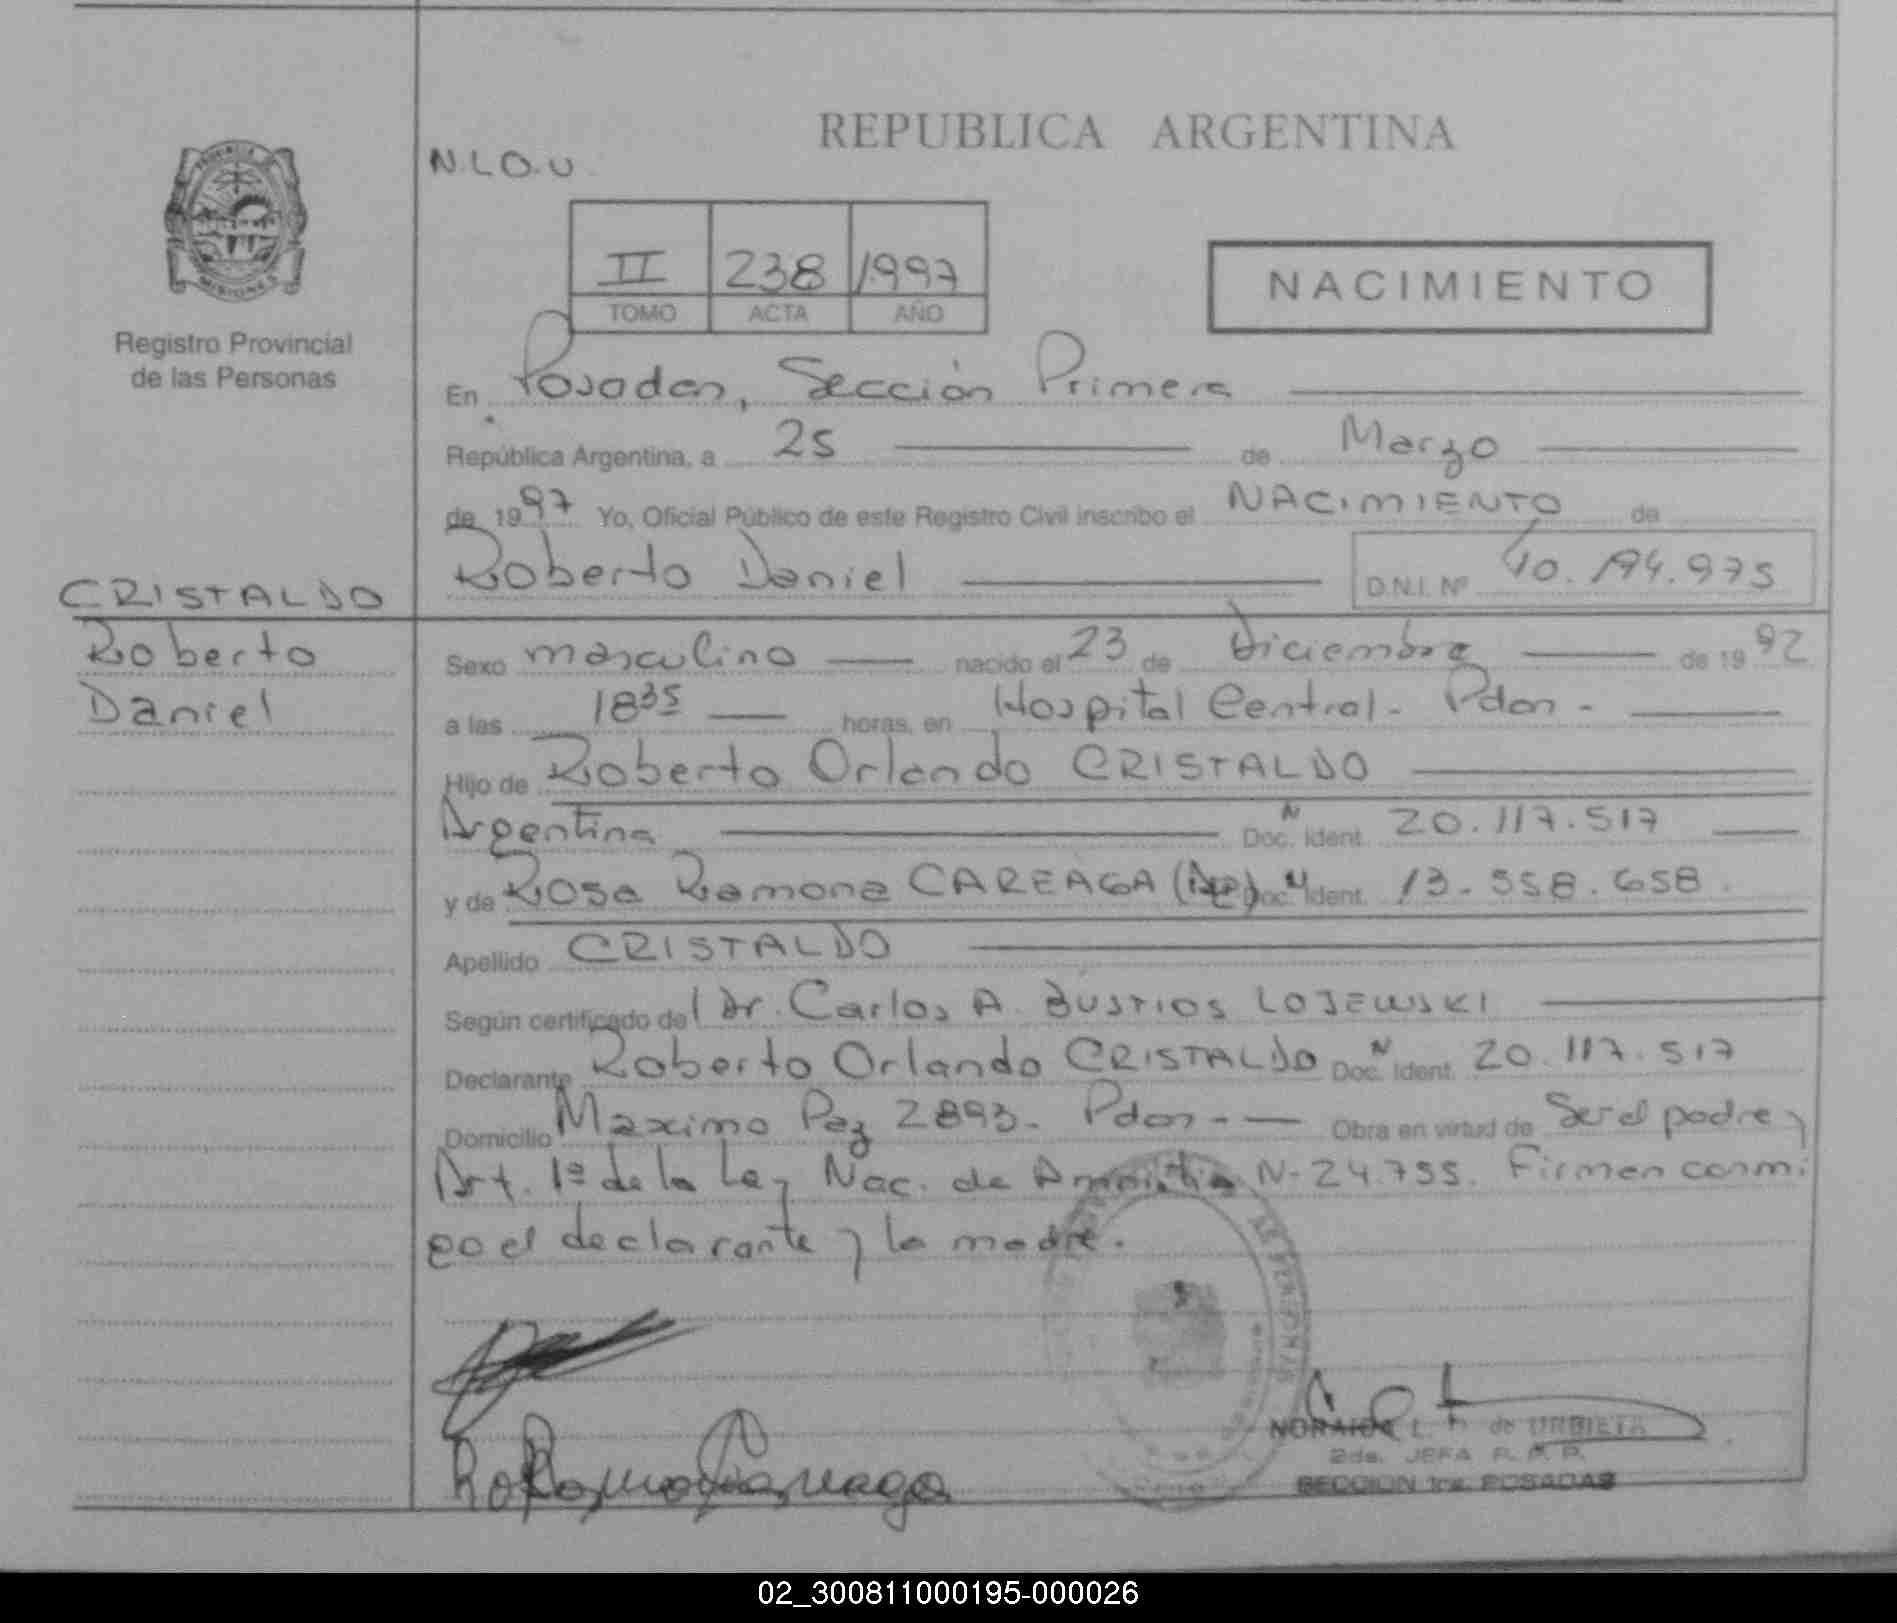 REPUBLICA ARGENTINA
N.L.O.U.
PROVINCIA DE
MISIONES
Registro Provincial
de las Personas
II 238 1997
TOMO ACTA AÑO
NACIMIENTO
En Posadas, Sección Primera
República Argentina, a 25 de Marzo
de 1997 Yo, Oficial Público de este Registro Civil inscribo el NACIMIENTO de
Roberto Daniel D.N.I. Nº 40.194.975
CRISTALDO
Roberto
Daniel
Sexo masculino nacido el 23 de Diciembre de 1992
a las 18 35 horas, en Hospital Central - Pdas -
Hijo de Roberto Orlando CRISTALDO
Argentina Doc. Ident. 20.117.517
y de Rosa Ramona CAREAGA Doc. Ident. 13.558.658.
Apellido CRISTALDO
Según certificado del Dr. Carlos A. BUSTIOS LOJEWSKI
Declarante Roberto Orlando CRISTALDO Doc. Ident. 20.117.517
Domicilio Maximo Paz 2893 - Pdas - Obra en virtud de Ser el padre y
Art. 1º de la Ley Nac. de Amnistia N- 24.755. Firman conmi
go el declarante y la madre.
NORAIDA L. F. de URBIETA
2da. JEFA R. P. P.
SECCION 1ra. POSADAS
02_300811000195-000026